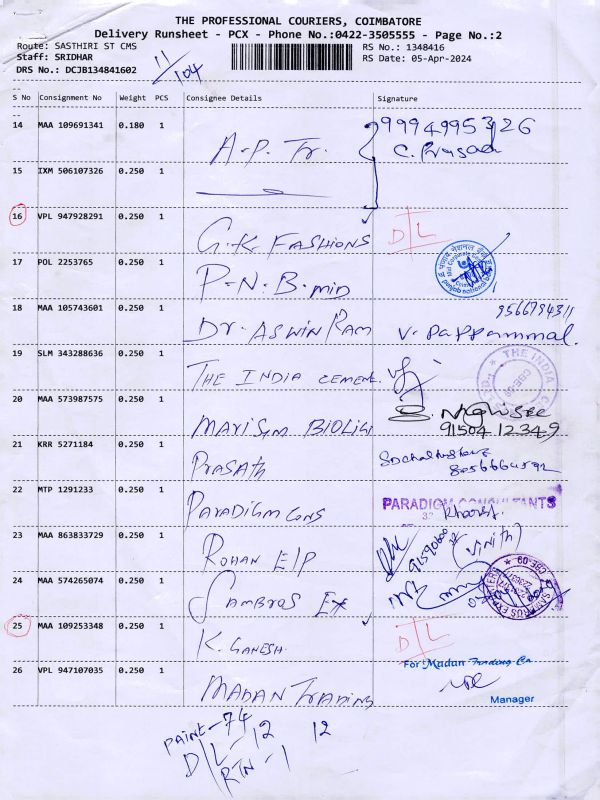 THE PROFESSIONAL COURIERS, COIMBATORE
Delivery Runsheet - PCX - Phone No.:0422-3505555 - Page No.:2
Route: SASTHIRI ST CMS
RS No.: 1348416
Staff: SRIDHAR
RS Date: 05-Apr-2024
DRS No.: DCJB134841602
11/104
S No Consignment No Weight PCS Consignee Details Signature
14 MAA 109691341 0.180 1 A-P. Tr. 99949953326
C. Prasad
15 IXM 506107326 0.250 1
16 VPL 947928291 0.250 1 G.K. FASHIONS D/L
17 POL 2253765 0.250 1 P-N.B-mid
punjab national bank
18 MAA 105743601 0.250 1 Dr. ASWIN RAM V. Pappammal.
19 SLM 343288636 0.250 1 THE INDIA CEMENT.
THE INDIA
CBE-09
20 MAA 573987575 0.250 1
91504 12349
21 KRR 5271184 0.250 1 PRASATH
22 MTP 1291233 0.250 1 PARADIGM CONS PARADIGM CONSULTANTS
23 MAA 863833729 0.250 1 ROHAN E/P (Vinith)
24 MAA 574265074 0.250 1 SAMBROS EX
CBE-09
25 MAA 109253348 0.250 1 K. GANESH. D/L
26 VPL 947107035 0.250 1 MADAN TRADING For Madan Trading Co.
Manager
PAINT-74
D/L-12 12
RTN-1